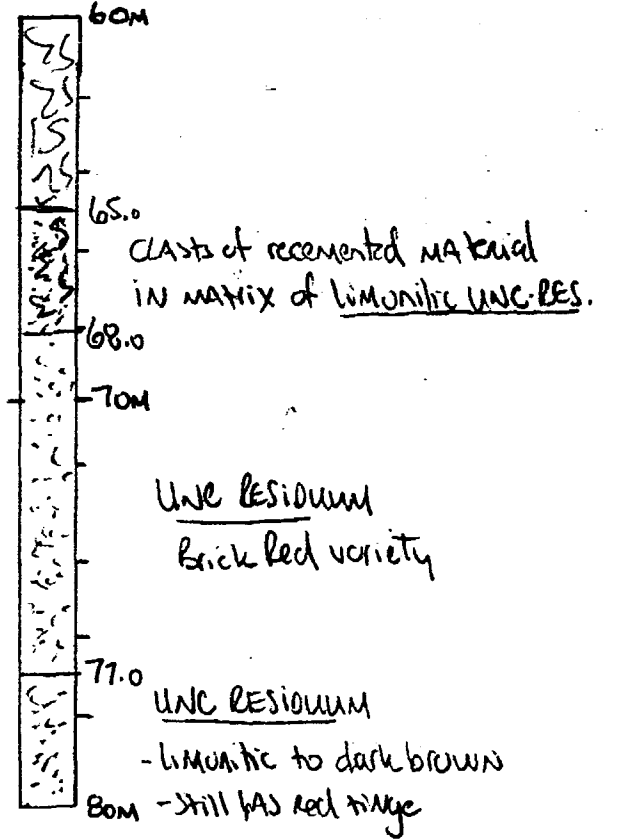 60M
65.0
CLASTS of recemented MAterial
IN MATRIX of LIMONITIC UNC-RES.
68.0
70M
UNC RESIDUUM
Brick Red variety
77.0
UNC RESIDUUM
- LIMONITIC to dark brown
80M - Still HAS red tinge